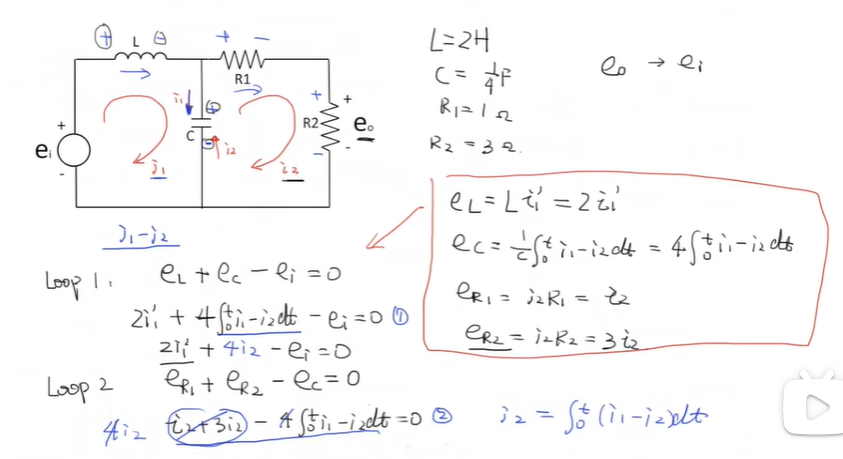 + L − + −
R1
i₁ + + +
+ C R2 eₒ
eᵢ − i₂
i₁ i₂ − −
−
L=2H
C = 1/4 F
R₁=1 Ω
R₂ = 3 Ω.
eₒ → eᵢ
i₁-i₂
e_L = L i₁' = 2 i₁'
e_C = 1/C ∫₀ᵗ i₁-i₂ dt = 4∫₀ᵗ i₁-i₂ dt
e_R₁ = i₂R₁ = i₂
e_R₂ = i₂R₂ = 3 i₂
Loop 1. e_L + e_C - eᵢ = 0
2i₁' + 4∫₀ᵗ i₁-i₂ dt - eᵢ = 0 ①
2i₁' + 4i₂ - eᵢ = 0
Loop 2 e_R₁ + e_R₂ - e_C = 0
4i₂ i₂+3i₂ - 4∫₀ᵗ i₁-i₂ dt = 0 ② i₂ = ∫₀ᵗ (i₁-i₂)dt